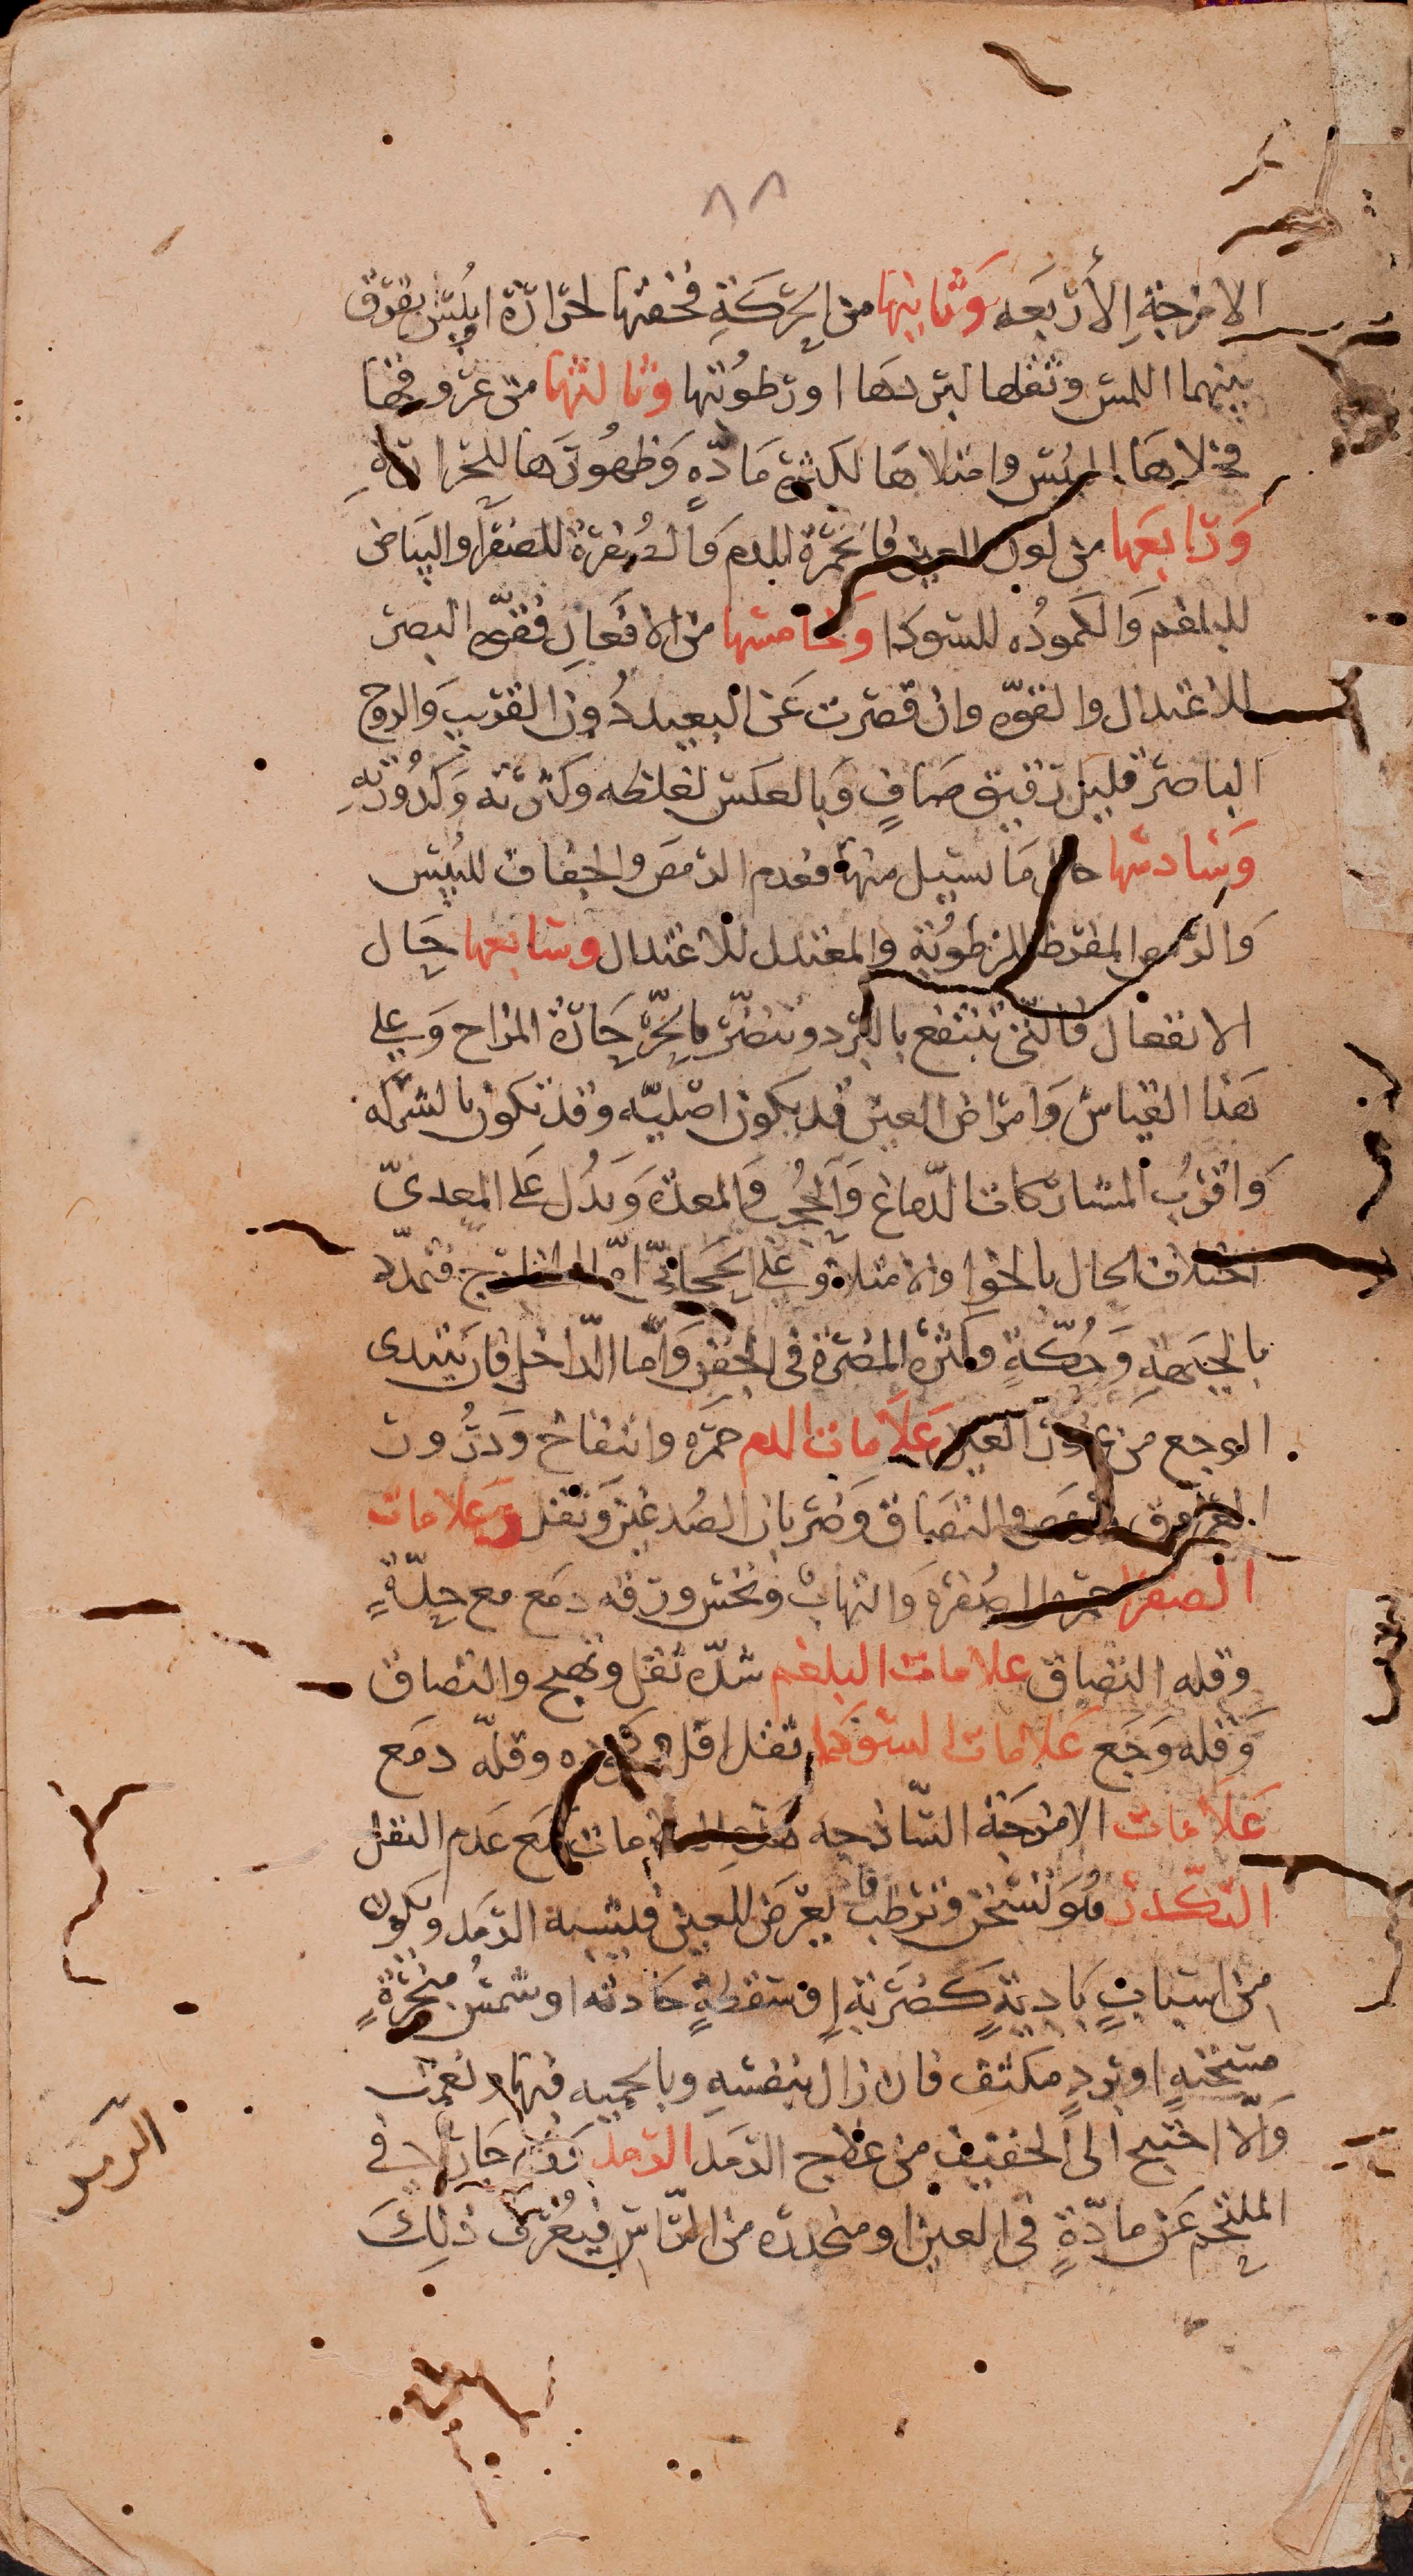 ٨٨
الامزجةِ الأربَعَه وَثانيها من الحركَةِ فخفتها لحرارة او يُبس يفرق
بينهما اللمس وثقلها لبردها او رطوُبتها وثالثها من عروقها
فخلاهَا لليبس وامتلاهَا لكثرة مَادّه وَظهُورَها للحرارة
وَرابعَها من لون العين فالحُمرة للدم وَالصُفرة للصفرا والبياض
للبلغم وَالكموُده للسودا وَخامسها من الافعَال فقوّة البصر
للاعتدال والقوّه وان قصرت عَن البعيد دُون القريب وَالروح
الباصر قليل رقيق صَافٍ وَبالعكس لغلظه وكثرته وَكدُورته
وَسَادسها حال مَا يسيل منها فعدم الرمص والجفاف لليُبس
وَالرمص المفرط للرطوُبة والمعتدل للاعتدال وسابعها حَال
الانفعال فالتي تنتفع بالبرد وتتضرّر بالحرّ حَارّة المزاج وَعلى
هَذا القياس وَامراض العين قد يكون اصليّه وقد تكون بالشركه
وَاقربُ المشاركات الدّماغ وَالحُجب وَالمعدَه وَيدُل عَلى المعديّ
اختلاف الحال بالخوا والامتلا وَعَلى الحجابيّ امّا الخارج فتمدّد
بالجَبهةِ وَحُكّةٍ وكثرة المضرّة في الجفن وَامّا الدّاخل فان يَبتدى
الوجع من غور العين عَلَامات الدم حمرَه وانتفاخ وَدرُور
العروق والرمَص والتصَاق وَضربان الصُدغين وَثقل وَعَلامات
الصفرا حمرة الى صُفرة وَالتهاب ونخس ورقه دمَع مع حِدّةٍ
وقله التصَاق علامات البلغم شدّه ثقل وتهيج والتصاق
وَقله وَجَع عَلامات السَودَا ثقل اقل وكمُوده وقلّه دمَع
عَلَامات الامزجَة السّاذجه هَذه العَلامات مَع عَدم الثقل
التكدّر هُوَ تسَخن وَترَطب يعرَض للعين فيشبه الرّمَد ويكون
من اسبابٍ بَاديةٍ كَضرَبةٍ او سَقطةٍ حَادثه او شمسُ مبخرَةٍ
مسَخنهٍ او بَردٍ مكثف فان زال بنفسهِ وبالحميه فبها ونعمت
وَالّا احتيج الى الخفيف من علاج الرمَد الرّمَد وَرم حَار في
الملتحم عَن مادّةٍ في العين او منحدره من الرّاس فيُعرَف ذلِكَ
الرمَد